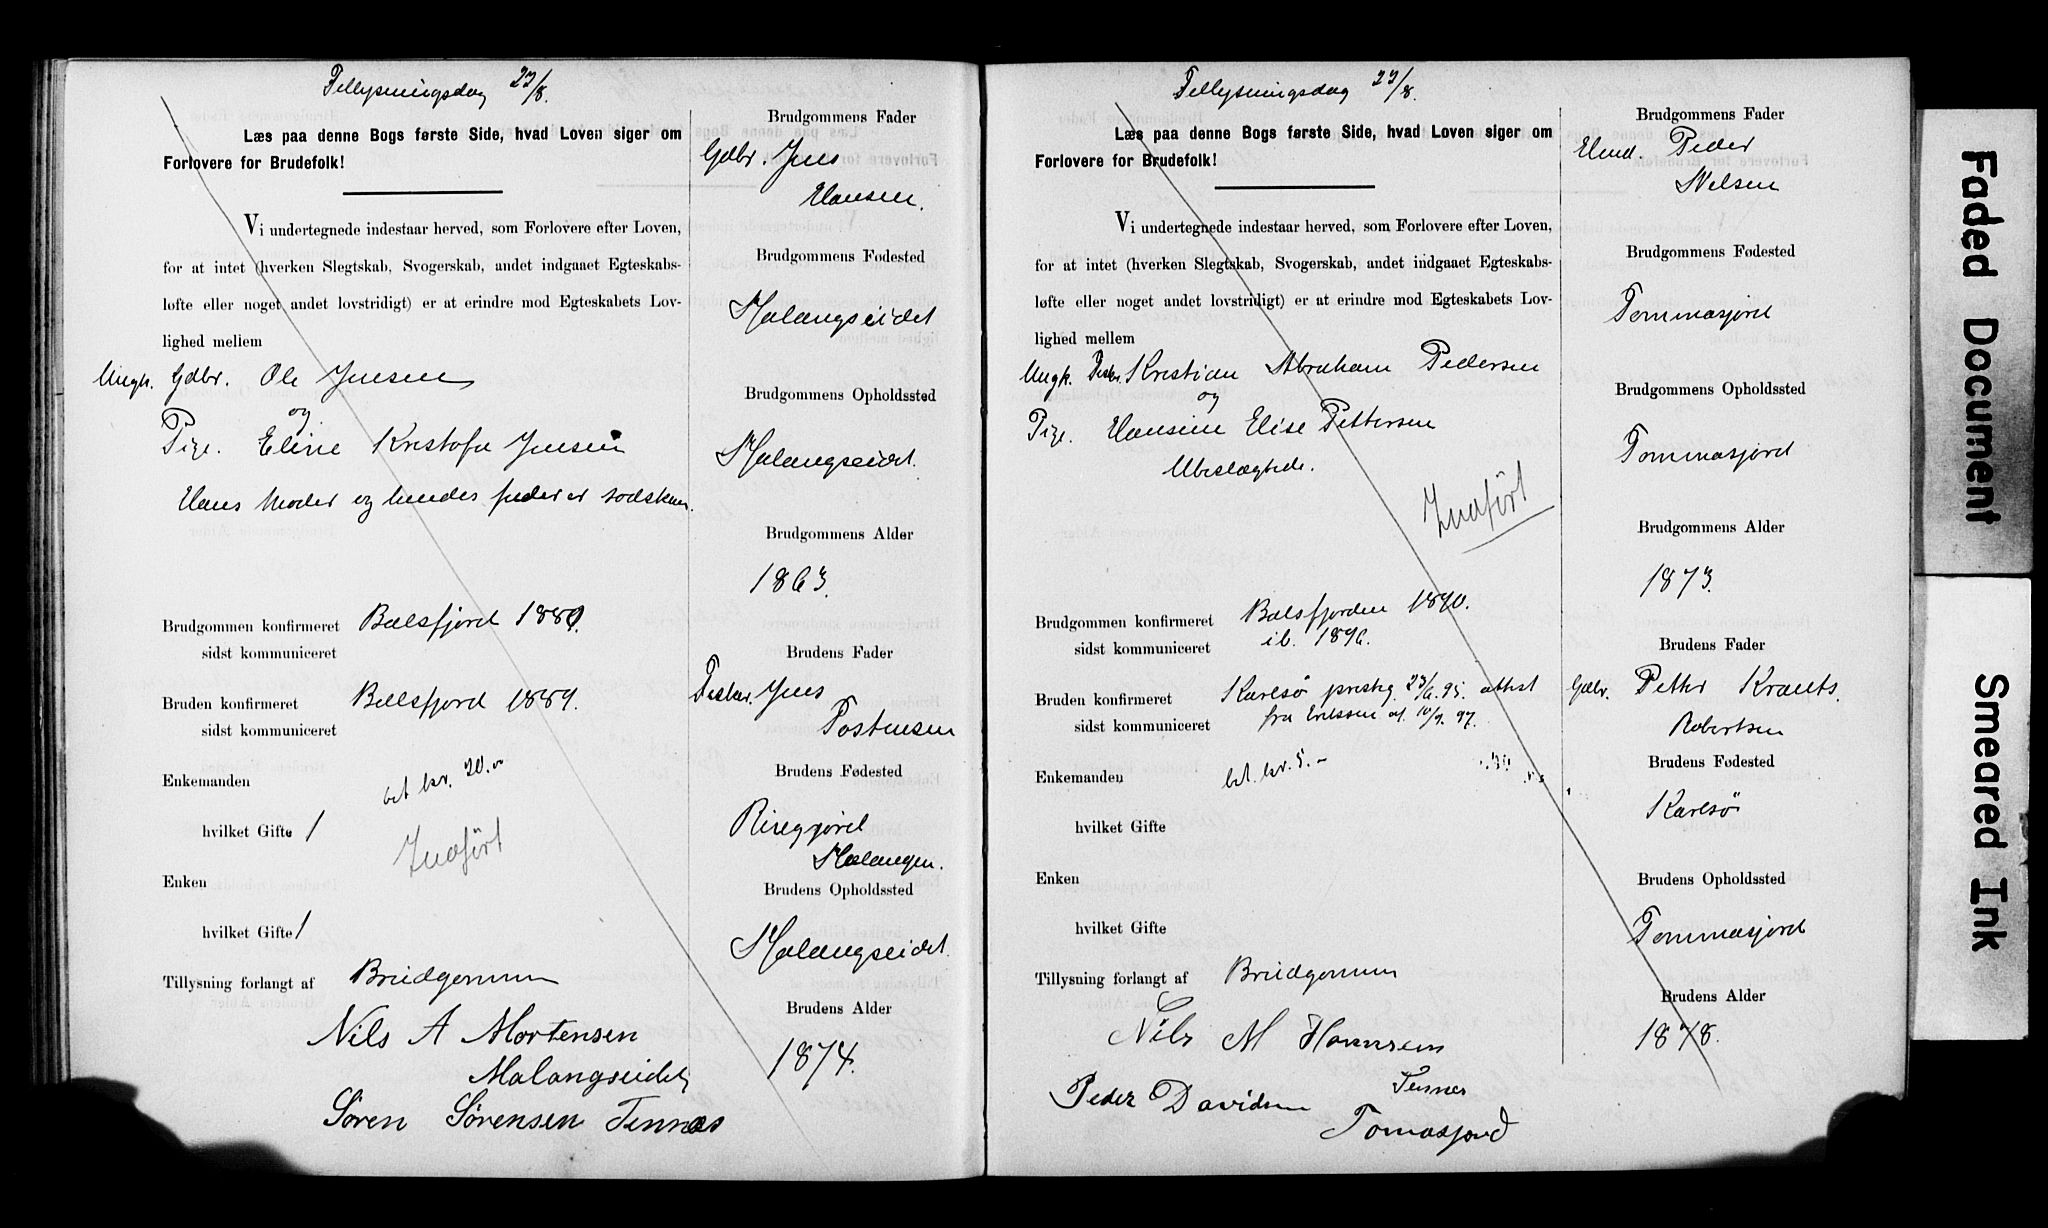 Tillysningsdag 22/8.
Læs paa denne Bogs første Side, hvad Loven siger om
Forlovere for Brudefolk!
Vi undertegnede indestaar herved, som Forlovere efter Loven,
for at intet (hverken Slegtskab, Svogerskab, andet indgaaet Egteskabs-
løfte eller noget andet lovstridigt) er at erindre mod Egteskabets Lov-
lighed mellem
Ungk. Gdbr. Ole Jensen
og
Pige. Eline Kristofa Jensen
Hans Moder og hendes fader er sødskn.
Brudgommen konfirmeret Balsfjord 1880.
sidst kommuniceret
Bruden konfirmeret Balsfjord 1889.
sidst kommuniceret
Enkemanden bet kr. 20.00
hvilket Gifte /
Indført
Enken
hvilket Gifte /
Tillysning forlangt af Brudgommen
Nils A Mortensen
Malangseidet
Søren Sørensen Tennes
Brudgommens Fader
Gdbr. Jens
Hansen.
Brudgommens Fødested
Malangseidet
Brudgommens Opholdssted
Malangseidet.
Brudgommens Alder
1863.
Brudens Fader
Fisker. Jens
Tostensen
Brudens Fødested
Malangen.
Brudens Opholdssted
Malangseidet.
Brudens Alder
1874.
Tillysningsdag 22/8.
Læs paa denne Bogs første Side, hvad Loven siger om
Forlovere for Brudefolk!
Vi undertegnede indestaar herved, som Forlovere efter Loven,
for at intet (hverken Slegtskab, Svogerskab, andet indgaaet Egteskabs-
løfte eller noget andet lovstridigt) er at erindre mod Egteskabets Lov-
lighed mellem
Ungk. Fisker. Kristian Abraham Pedersen
og
Pige. Hansine Elise Pettersen
Ubeslægtede.
Indført
Brudgommen konfirmeret Balsfjorden 1890.
sidst kommuniceret ib. 1896.
Bruden konfirmeret Karlsø prestg. 23/6. 95. attest
sidst kommuniceret fra Erikssen af 10/7. 97.
Enkemanden bet. kr. 5.-
hvilket Gifte
Enken
hvilket Gifte
Tillysning forlangt af Brudgommen
Nils M Hansen
Tennes
Peder Davidsen
Tomasjord
Brudgommens Fader
Hmd. Peder
Nilsen
Brudgommens Fødested
Tommasjord
Brudgommens Opholdssted
Tommasjord
Brudgommens Alder
1873.
Brudens Fader
Gdbr. Petter Krants.
Robertsen
Brudens Fødested
Karlsø
Brudens Opholdssted
Tommasjord
Brudens Alder
1878.
Faded Document
Smeared Ink